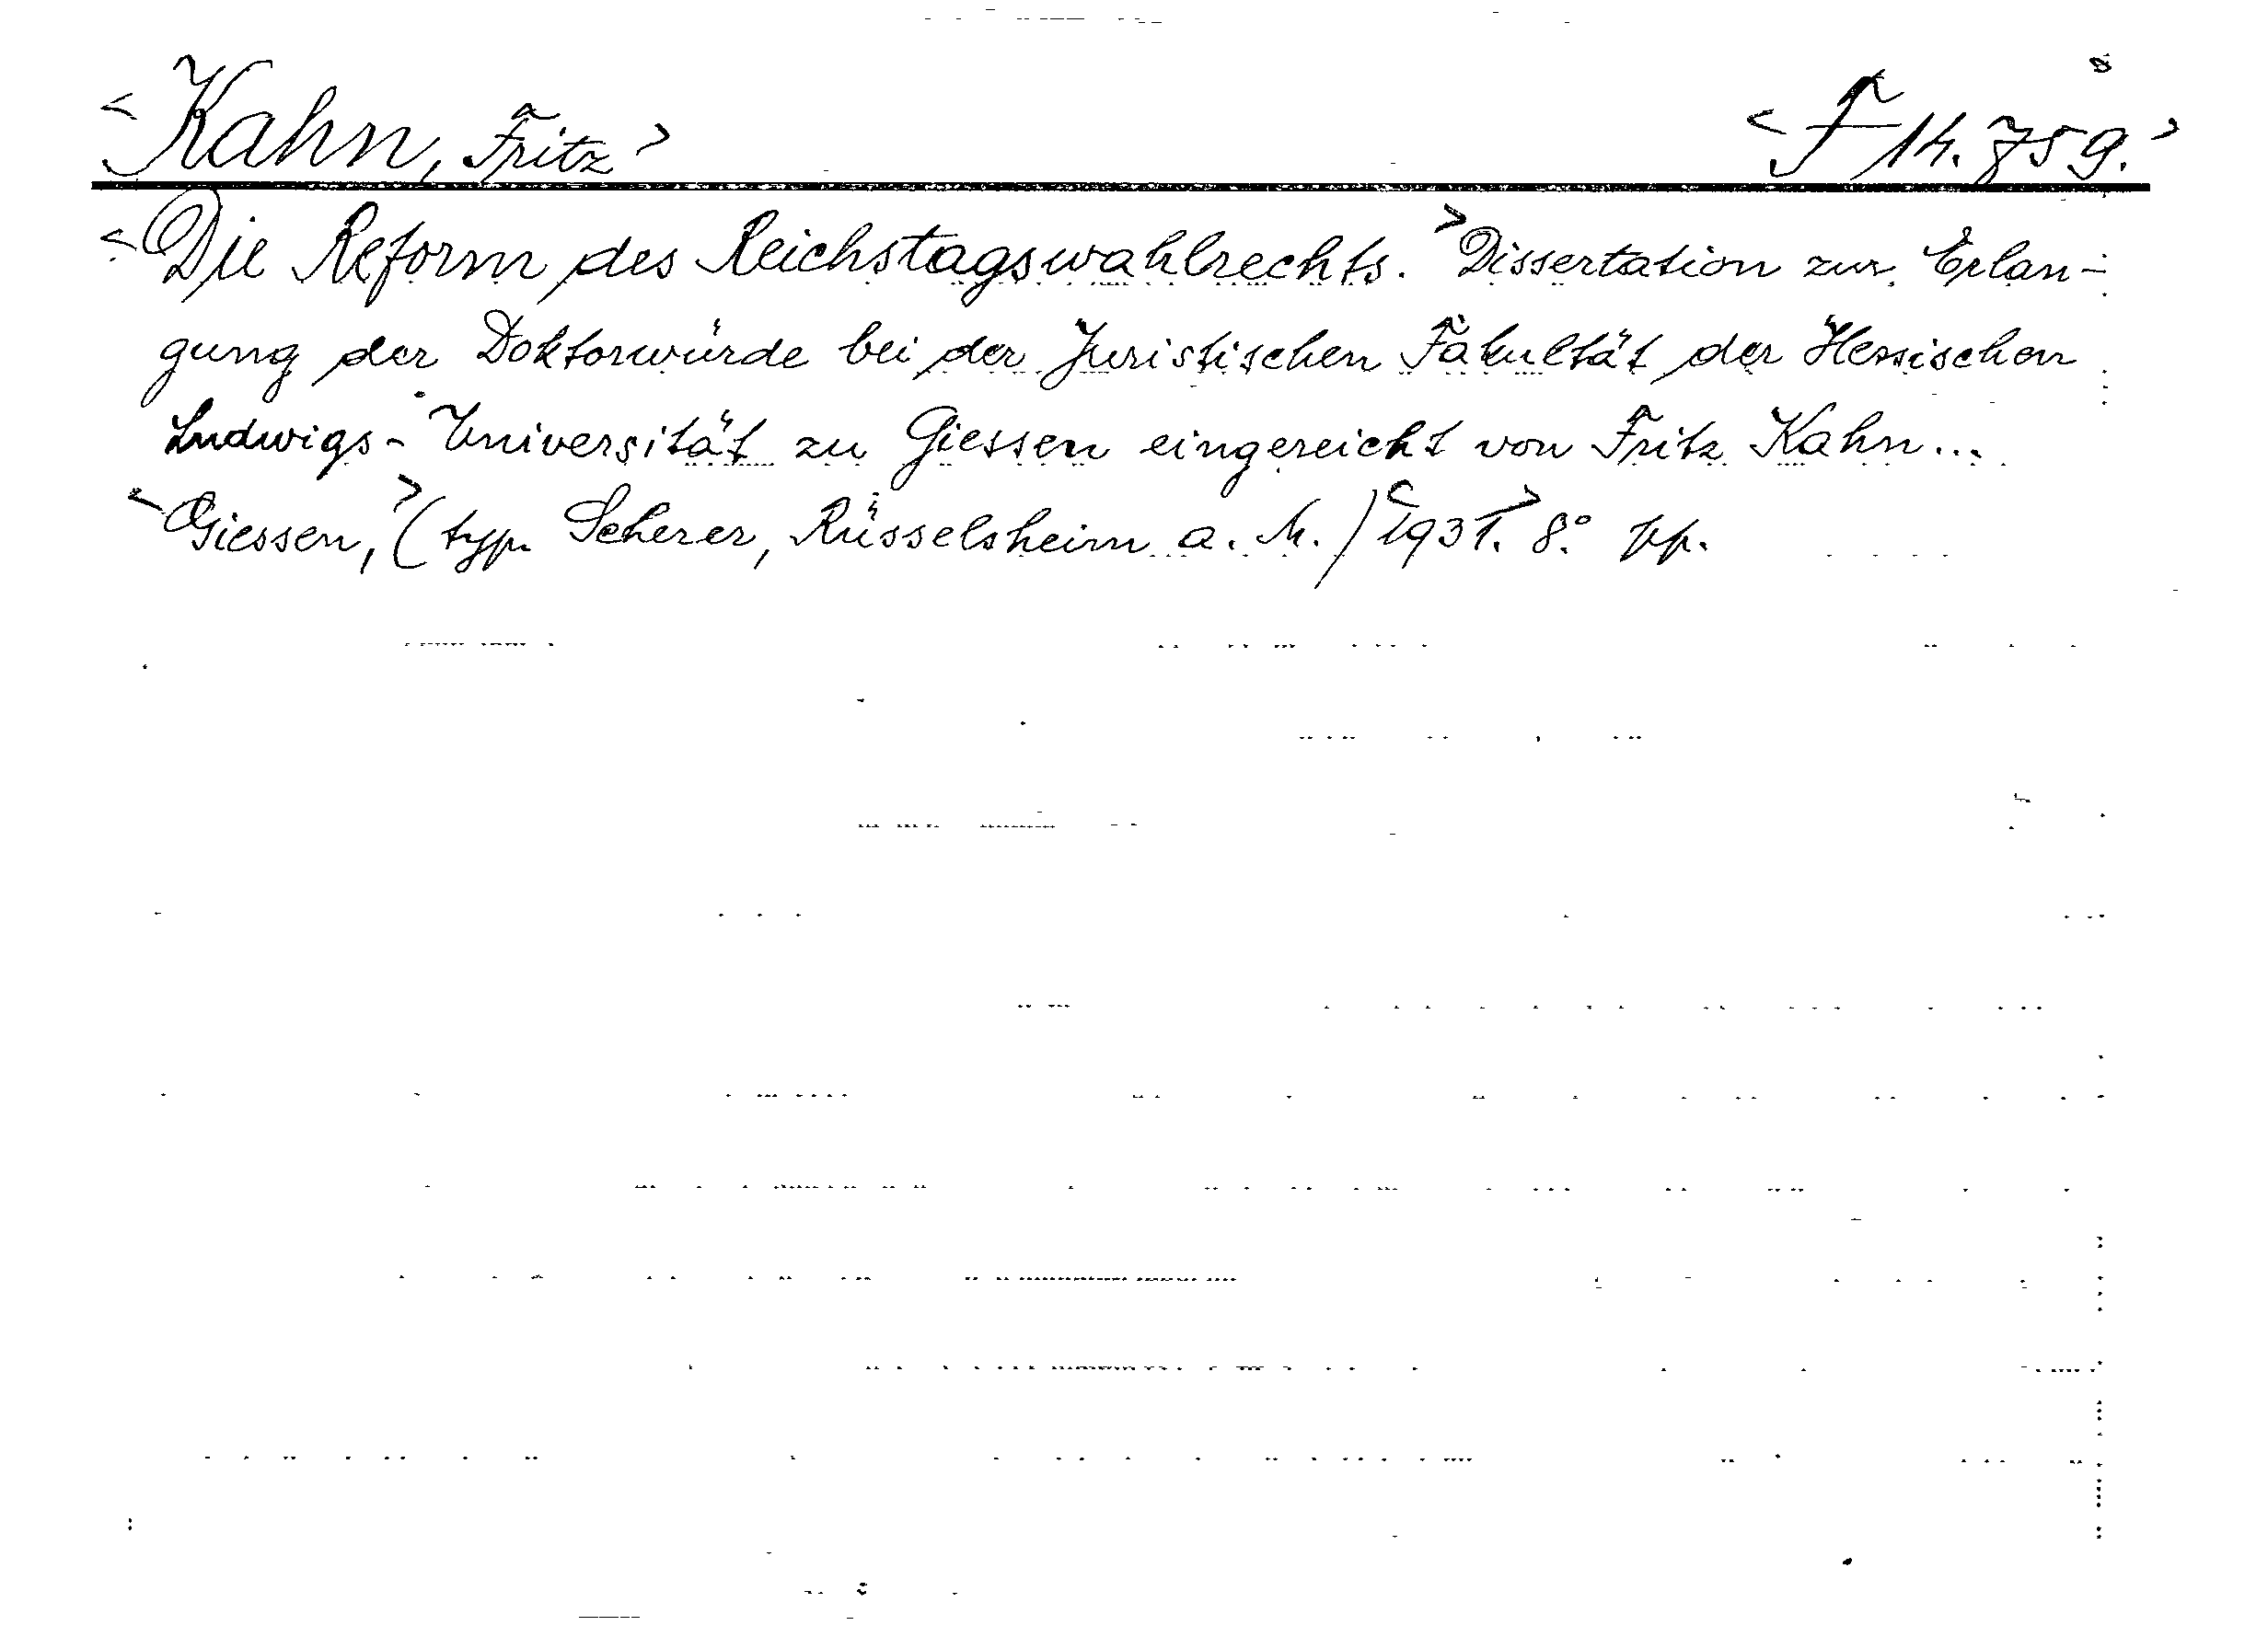 <Kahn, Fritz> <F 14.759.>
<Die Reform des Reichstagswahlrechts.> Dissertation zur Erlan-
gung der Doktorwürde bei der Juristischen Fakultät der Hessischen
Ludwigs-Universität zu Giessen eingereicht von Fritz Kahn...
<Giessen,> (typ. Scherer, Rüsselsheim a. M.) <1931.> 8.° pp.